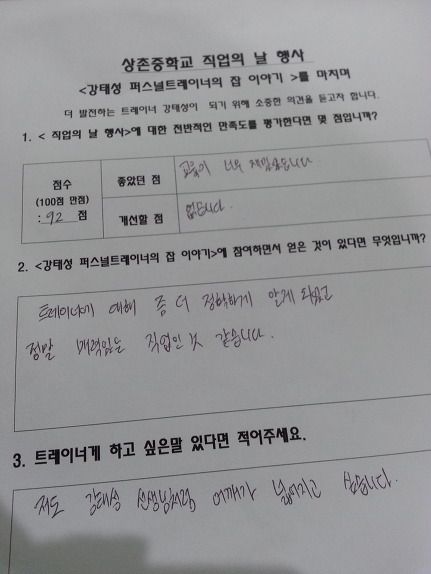 상존중학교 직업의 날 행사
<강태성 퍼스널트레이너의 잡 이야기 >를 마치며
더 발전하는 트레이너 강태성이 되기 위해 소중한 의견을 듣고자 합니다.
1. < 직업의 날 행사>에 대한 전반적인 만족도를 평가한다면 몇 점입니까?
점수
(100점 만점)
: 92 점
좋았던 점
교육이 너무 재밌었습니다
개선할 점
없습니다.
2. <강태성 퍼스널트레이너의 잡 이야기>에 참여하면서 얻은 것이 있다면 무엇입니까?
트레이너에 대해 좀 더 정확하게 알게 되었고
정말 매력있는 직업인 것 같습니다.
3. 트레이너게 하고 싶은말 있다면 적어주세요.
저도 강태성 선생님처럼 어깨가 넓어지고 싶습니다.